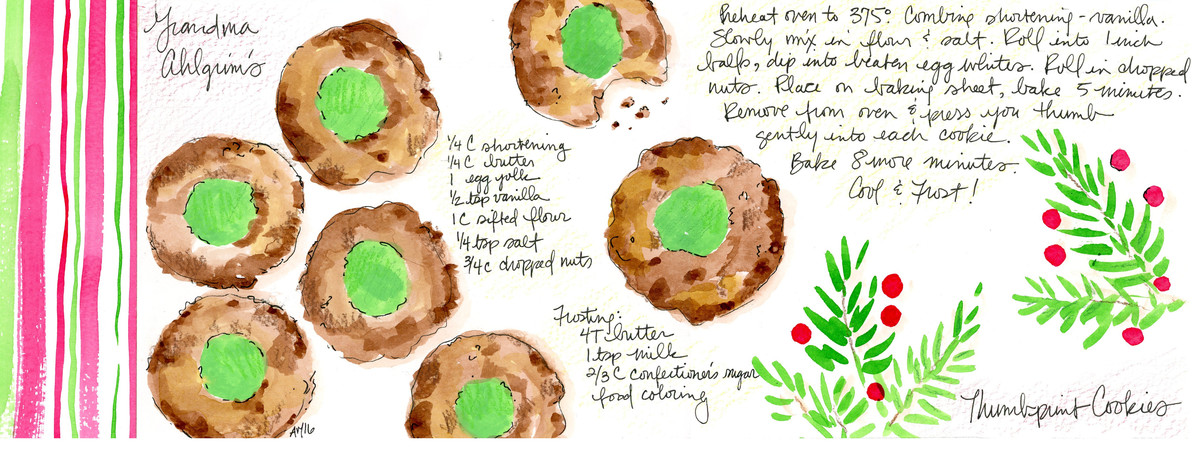 Grandma
Ahlgrim's
1/4 C shortening
1/4 C butter
1 egg yolk
1/2 tsp vanilla
1 C sifted flour
1/4 tsp salt
3/4 c chopped nuts
Frosting:
4T butter
1 tsp milk
2/3 C confectioner's sugar
food coloring
Preheat oven to 375°. Combine shortening - vanilla.
Slowly mix in flour & salt. Roll into 1 inch
balls, dip into beaten egg whites. Roll in chopped
nuts. Place on baking sheet, bake 5 minutes.
Remove from oven & press you thumb
gently into each cookie.
Bake 8 more minutes.
Cool & Frost!
Thumbprint Cookies